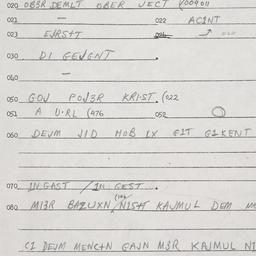 020 OBER DEMLT OBER JECT
021 — 022 ACINT
023 EJRST+
030 DI GEJGNT .
040 —
050 GOJ POJ3R KRIST. (022
051 A U.RL (476 052
060 DEJM JID HOB IX GIT GIKENT
070 IN GAST / IN GEST .
080 MI3R BAZUXN / NIST KAJMUL DEM
CI DEJM MENC+N GAJN M3R KAJMUL NI